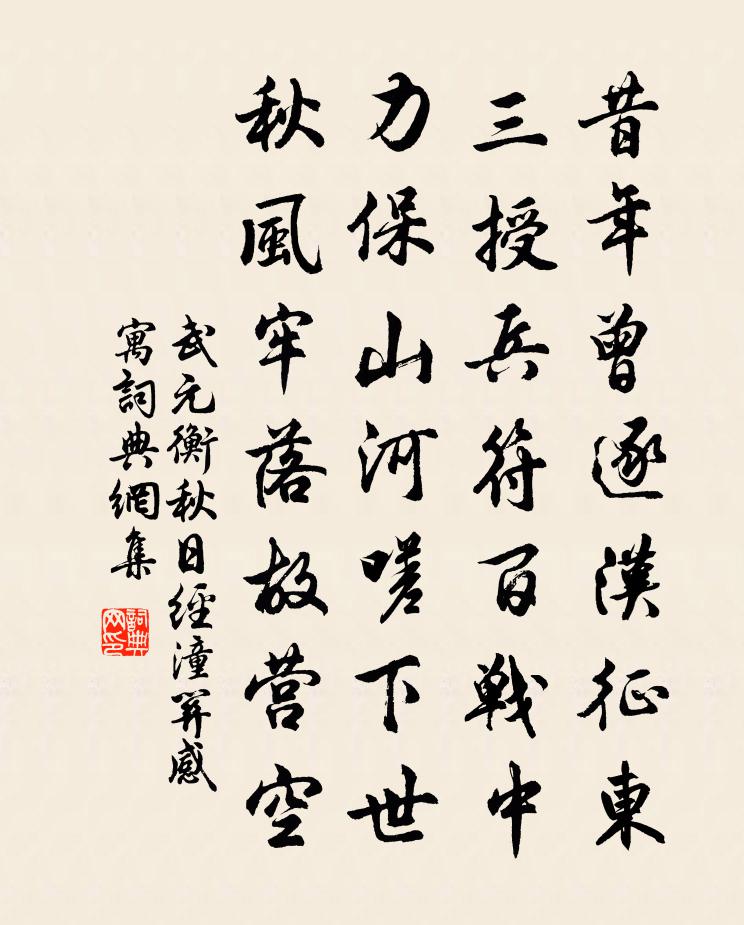 昔年曾逐漢征東
三授兵符百戰中
力保山河嗟下世
秋風牢落故营空
武元衡秋日經潼關感
寓詞典網集
詞典網印